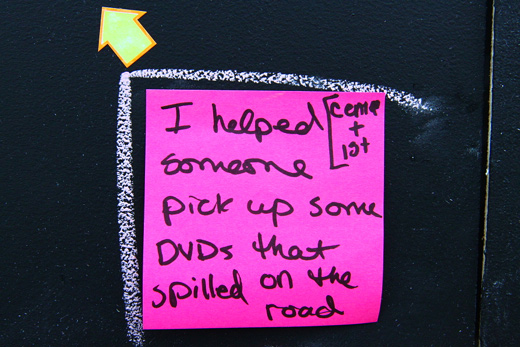 I helped
someone
pick up some
DVDs that
spilled on the
road
[ceme
+
1st